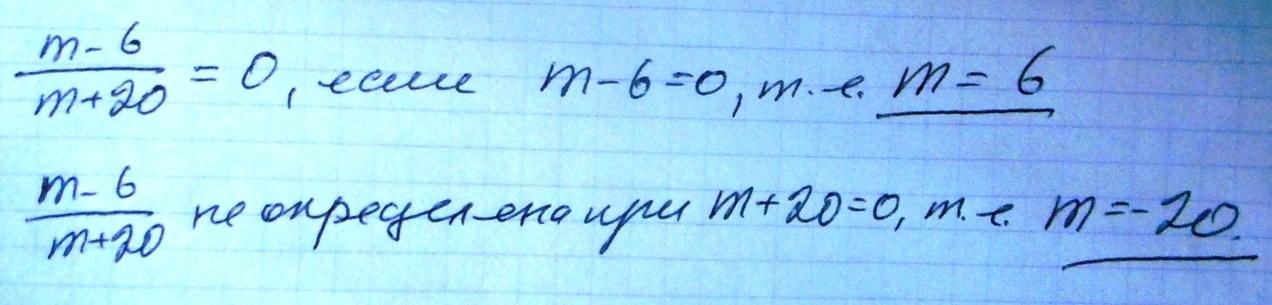 (m-6)/(m+20) = 0, если m-6=0, т.е. m = 6
(m-6)/(m+20) не определена при m+20=0, т.е. m=-20.